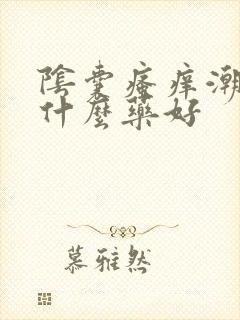 陰囊瘙癢潮
什麼藥好
慕雅然